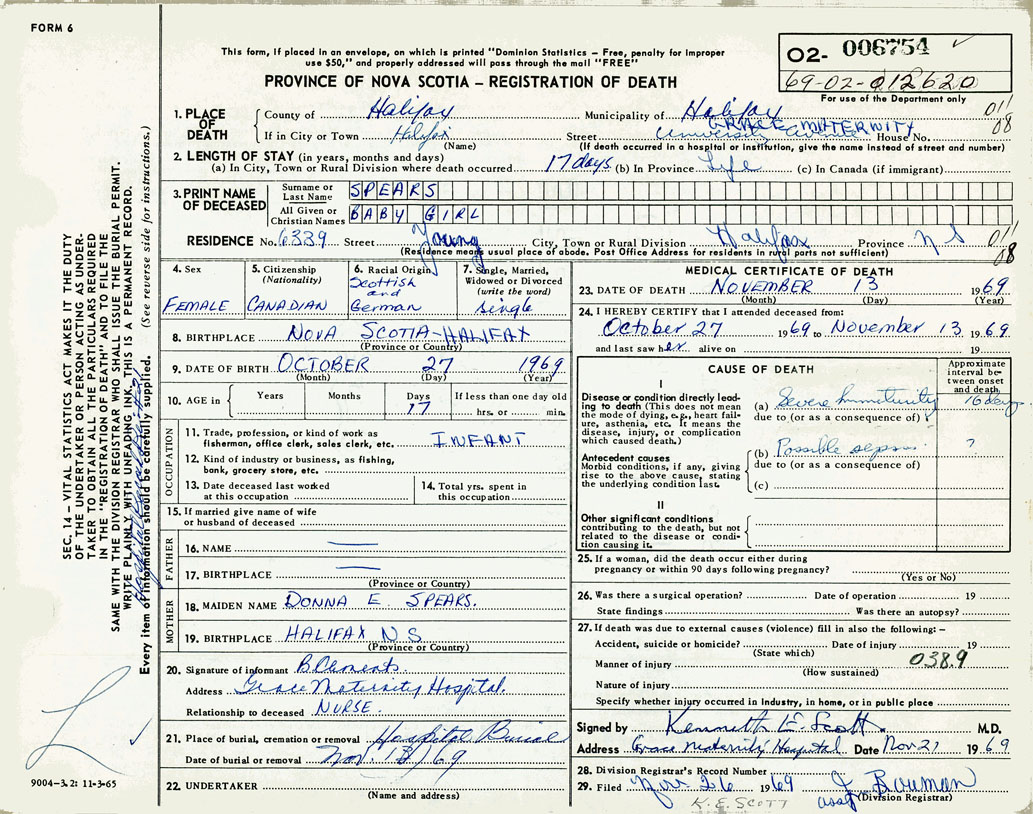 FORM 6
This form, if placed in an envelope, on which is printed "Dominion Statistics – Free, penalty for improper
use $50," and properly addressed will pass through the mail "FREE"
PROVINCE OF NOVA SCOTIA – REGISTRATION OF DEATH
O2- 006754
69-02-012620
For use of the Department only
1. PLACE OF DEATH
County of Halifax Municipality of Halifax 011
08
GRACE MATERNITY
If in City or Town Halifax Street University Avenue House No.
(Name) (If death occurred in a hospital or institution, give the name instead of street and number)
2. LENGTH OF STAY (in years, months and days)
(a) In City, Town or Rural Division where death occurred 17 days (b) In Province Life (c) In Canada (if immigrant)
3. PRINT NAME OF DECEASED
Surname or Last Name SPEARS
All Given or Christian Names BABY GIRL
RESIDENCE No. 6339 Street Young City, Town or Rural Division Halifax Province N S 011
08
(Residence means usual place of abode. Post Office Address for residents in rural parts not sufficient)
4. Sex
FEMALE
5. Citizenship
(Nationality)
CANADIAN
6. Racial Origin
Scottish
and
German
7. Single, Married,
Widowed or Divorced
(write the word)
single
8. BIRTHPLACE NOVA SCOTIA-HALIFAX
(Province or Country)
9. DATE OF BIRTH OCTOBER 27 1969
(Month) (Day) (Year)
10. AGE in Years Months Days If less than one day old
17 hrs. or min.
OCCUPATION
11. Trade, profession, or kind of work as
fisherman, office clerk, sales clerk, etc. INFANT
12. Kind of industry or business, as fishing,
bank, grocery store, etc.
13. Date deceased last worked
at this occupation
14. Total yrs. spent in
this occupation
15. If married give name of wife
or husband of deceased
FATHER
16. NAME —
17. BIRTHPLACE —
(Province or Country)
MOTHER
18. MAIDEN NAME DONNA E. SPEARS.
19. BIRTHPLACE HALIFAX N S
(Province or Country)
20. Signature of informant B Clements.
Address Grace Maternity Hospital.
Relationship to deceased NURSE.
21. Place of burial, cremation or removal Hospital Burial
Date of burial or removal Nov. 13/69
22. UNDERTAKER
(Name and address)
MEDICAL CERTIFICATE OF DEATH
23. DATE OF DEATH NOVEMBER 13 1969
(Month) (Day) (Year)
24. I HEREBY CERTIFY that I attended deceased from:
October 27 1969 to November 13 1969
and last saw her alive on 19
CAUSE OF DEATH
Approximate
interval be-
tween onset
and death
I
Disease or condition directly lead-
ing to death (This does not mean
the mode of dying, e.g., heart fail-
ure, asthenia, etc. It means the
disease, injury, or complication
which caused death.)
(a) Severe Immaturity 16 days
due to (or as a consequence of)
Antecedent causes
Morbid conditions, if any, giving
rise to the above cause, stating
the underlying condition last.
(b) Possible sepsis ?
due to (or as a consequence of)
(c)
II
Other significant conditions
contributing to the death, but not
related to the disease or condi-
tion causing it.
25. If a woman, did the death occur either during
pregnancy or within 90 days following pregnancy?
(Yes or No)
26. Was there a surgical operation? Date of operation 19
State findings Was there an autopsy?
27. If death was due to external causes (violence) fill in also the following: –
Accident, suicide or homicide? Date of injury 19
(State which)
Manner of injury 038.9
(How sustained)
Nature of injury
Specify whether injury occurred in Industry, in home, or in public place
Signed by Kenneth E. Scott M.D.
Address Grace Maternity Hospital Date Nov 21 1969
28. Division Registrar's Record Number
29. Filed Nov 26 1969 J. Bowman
asst (Division Registrar)
K. E. SCOTT
SEC. 14 – VITAL STATISTICS ACT MAKES IT THE DUTY
OF THE UNDERTAKER OR PERSON ACTING AS UNDER-
TAKER TO OBTAIN ALL THE PARTICULARS REQUIRED
IN THE "REGISTRATION OF DEATH" AND TO FILE THE
SAME WITH THE DIVISION REGISTRAR WHO SHALL ISSUE THE BURIAL PERMIT.
WRITE PLAINLY WITH UNFADING INK, THIS IS A PERMANENT RECORD.
Every item of information should be carefully supplied. (See reverse side for instructions.)
9004-3.2: 11-3-65